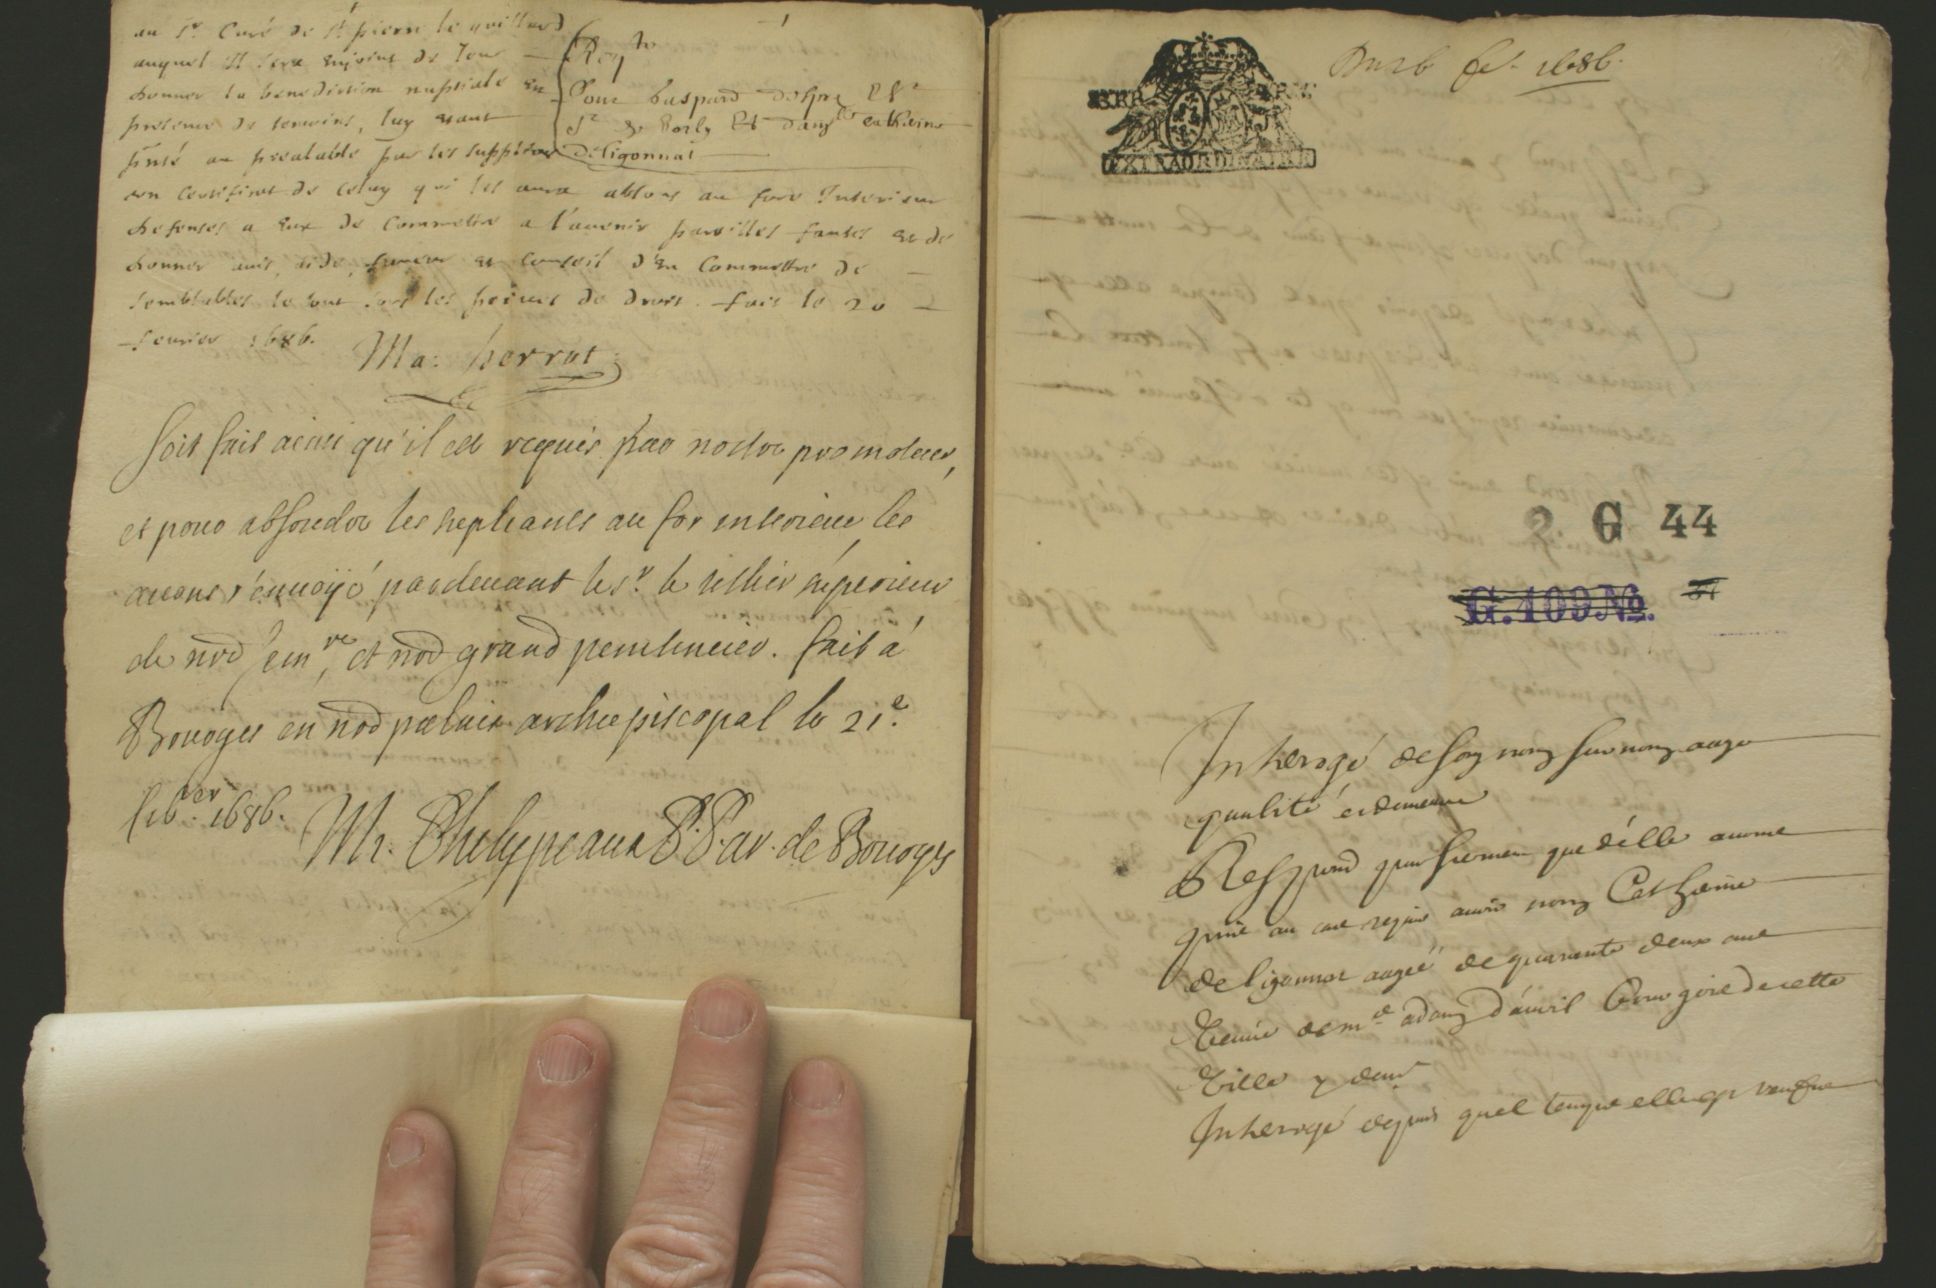 au Sr. Curé de St pierre le guillard
auquel Il sera enjoint de leur
donner la benediction nuptiale en
presence de temoins, luy etant
pnté au prealable par les supplians
un certificat de celuy qui les aura absous au fore Interieur
defenses a eux de commettre a l'avenir pareilles fautes et de
donner avis, aide, faveur et conseil d'en commettre de
semblables le tout sous les peines de droit. fait le 20
fevrier 1686.
Ma: perrot
Reqte
Pour Gaspard
Sr de et damlle catherine
deligonnat
Soit fait ainsi qu'il est requis par nostre promoteur,
et pour absoudre les supliants au for interieur les
avons r'envoÿé pardevant le sr. le tellier superieur
de nre semre, et nre grand penitencier. fait à
Bourges en nre palais archiepiscopal le 21e.
febver. 1686. Mr. Phelypeaux P. P. ar. de Bourges
Du 26 fev. 1686.
EXTRAORDINAIRE
2 G 44
G. 109 No.
Interogé de son nom surnom aage
qualité et demeure
Respond par serment que d'elle avons
prins au cas requis avoir nom Catherine
de ligonnat aagée de quarante deux ans
veuve de me adam d'avril bourgois de cette
ville y demt
Interogé depuis quel temps elle est veufve